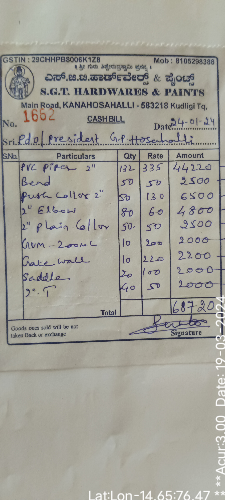 GSTIN : 29CHHPB8006K1Z8 Mob : 8105298388
|| ಶ್ರೀ ಗುರು ||
ಎಸ್.ಜಿ.ಟಿ.ಹಾರ್ಡ್‌ವೇರ್ಸ್ & ಪೈಂಟ್ಸ್
S.G.T. HARDWARES & PAINTS
Main Road, KANAHOSAHALLI - 583218 Kudligi Tq,
CASH BILL
No. 1662 Date 24-01-24
Sri Pdo/president G.P Hosahalli
SNo. Particulars Qty Rate Amount
PVC Pipes 2" 132 335 44220
Bend 50 50 2500
Push Collor 2" 50 130 6500
2" Elbow 80 60 4800
2" Plain Collor 50 50 3500
Gum - 200mL 10 200 2000
Gate wall 10 220 2200
Saddle 20 100 2000
2" T 40 50 2000
Total 68720
Goods once sold will be not
taken Back or exchange
Signature
Lat:Lon-14.65:76.47 **Acur:3.00 Date: 19-03-2024